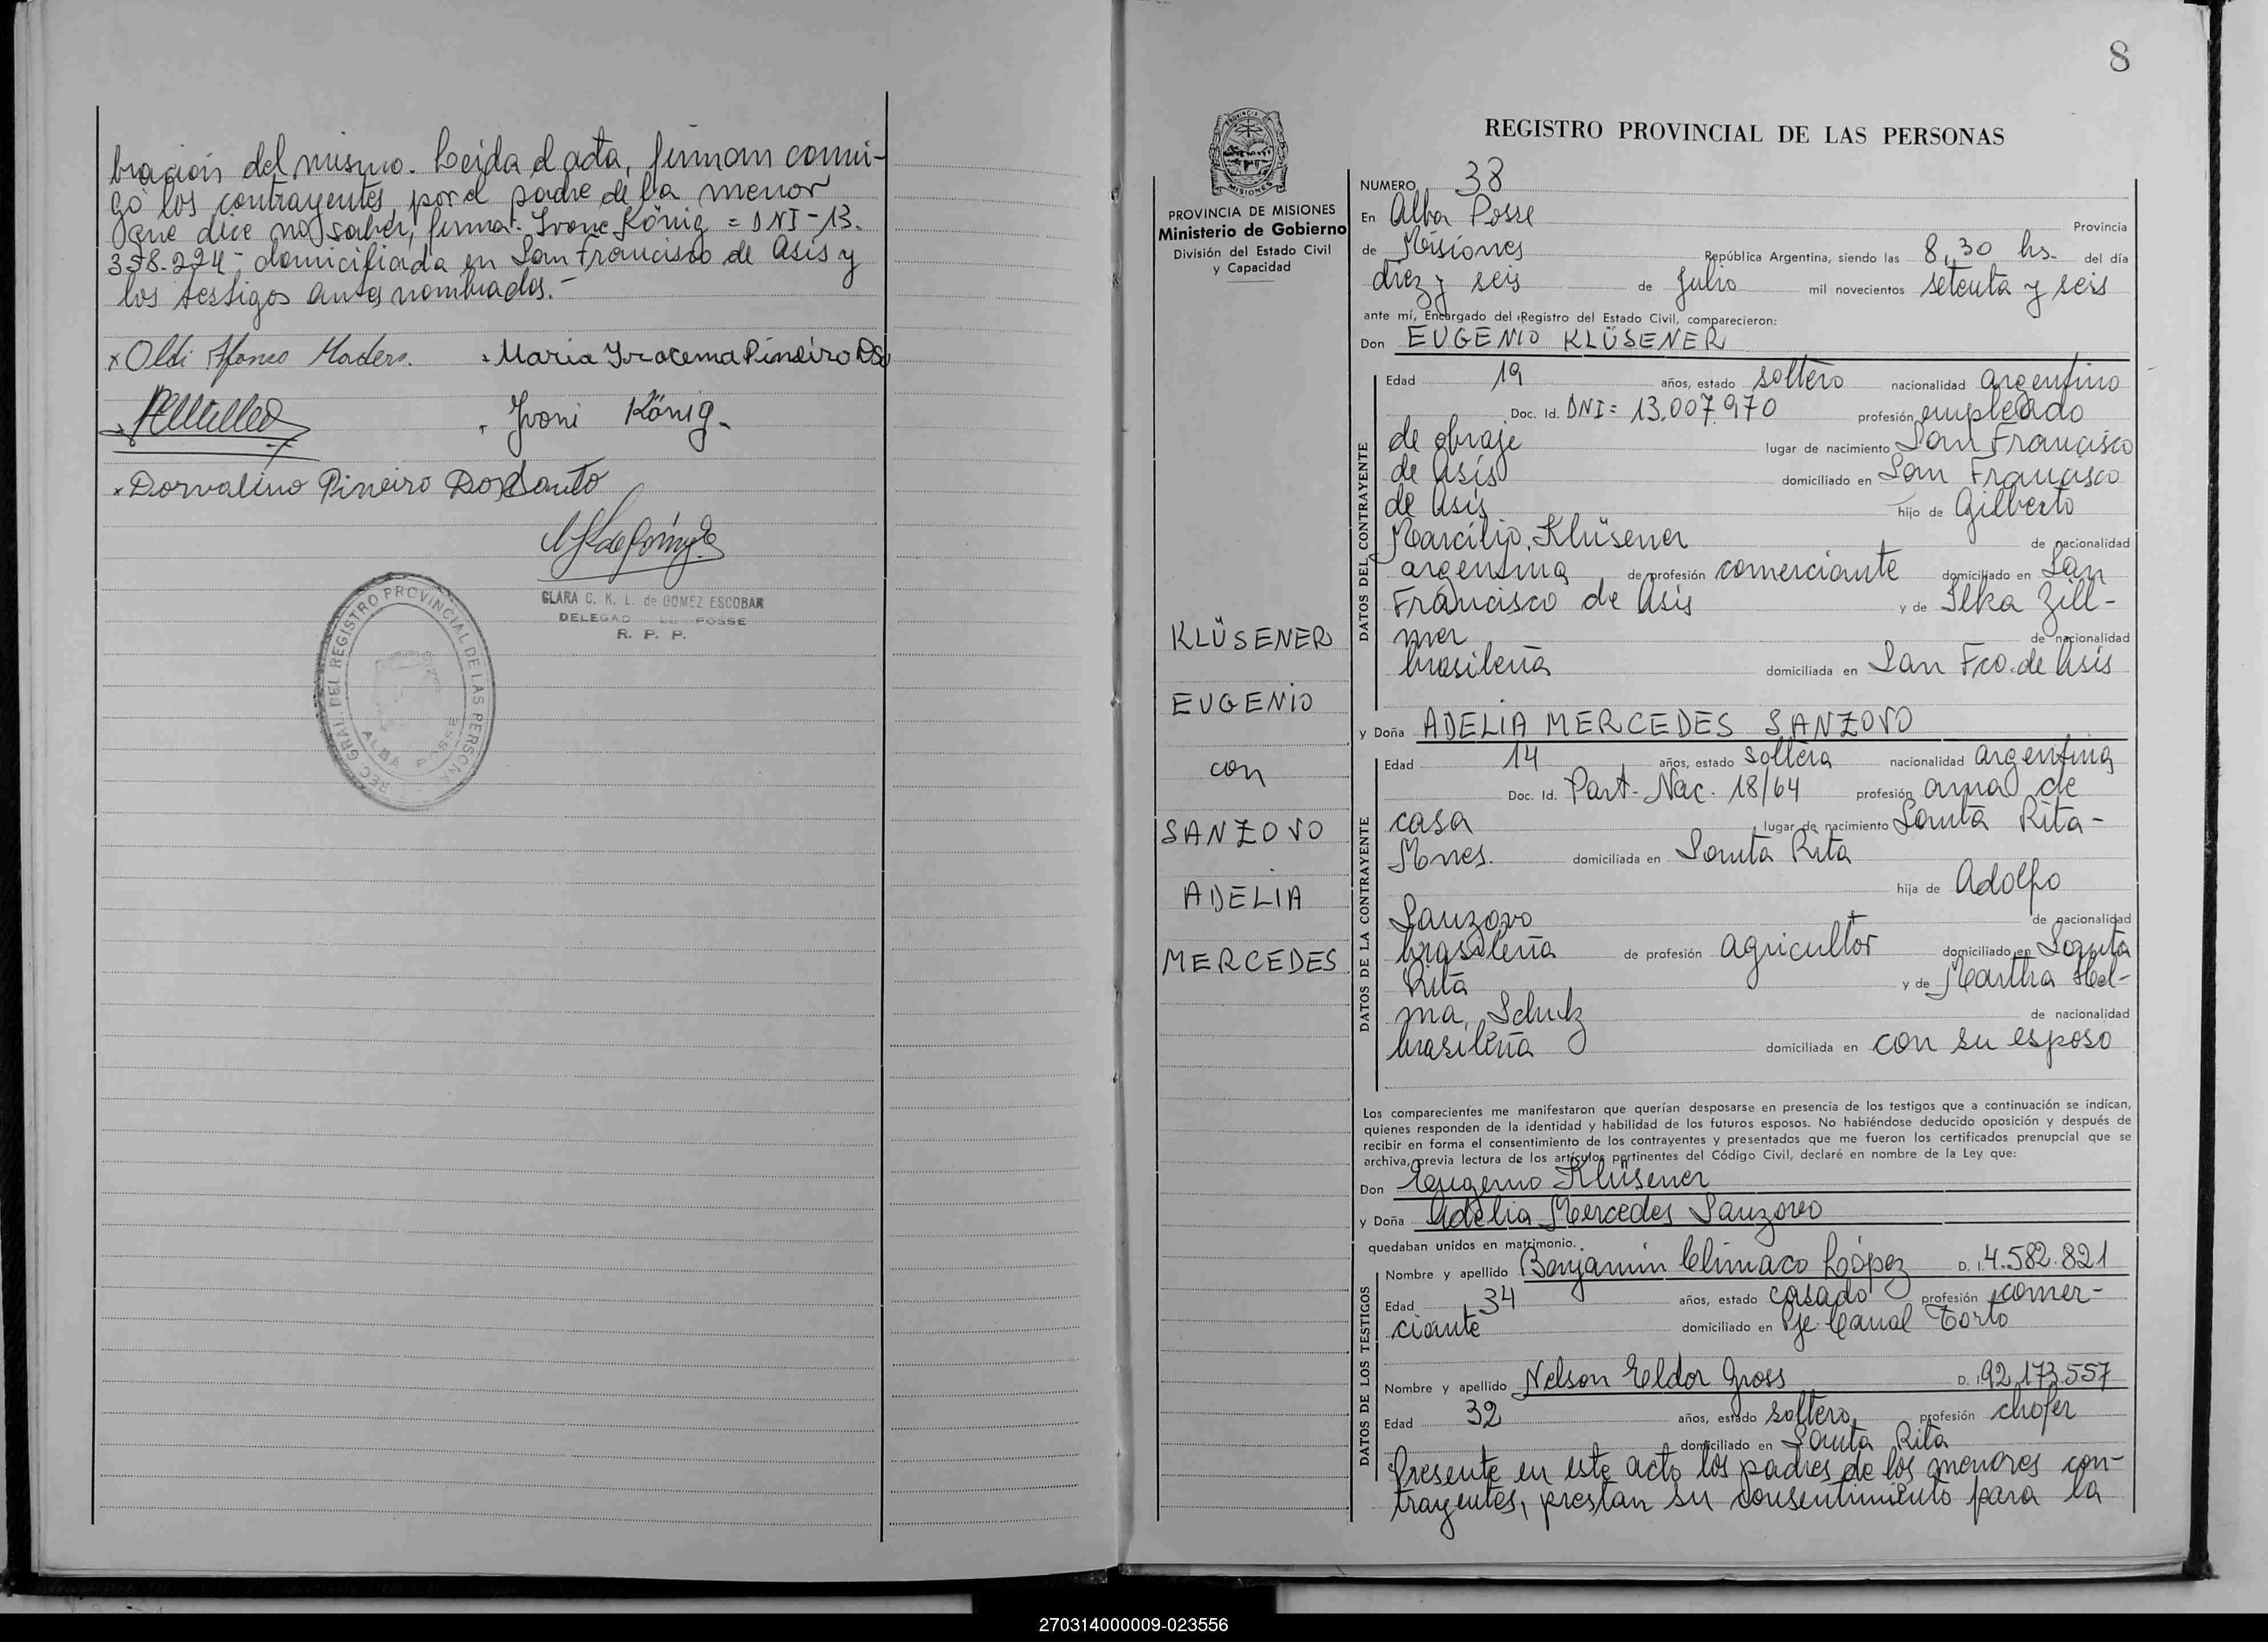 bración del mismo. Leida el acta, firman conmi-
go los contrayentes por el padre de la menor
que dice no saber, firma: Ivone König = DNI-13.
358.224 - domiciliada en San Francisco de Asís y
los testigos antes nombrados.-
x Oldi Afonco Maders. Maria Iracema Pineiro DS
Ivoni König.
x Dorvalino Pineiro Dos Santo
CLARA C. K. L. de GOMEZ ESCOBAR
DELEGAD POSSE
R. P. P.
REC. GRAL. DEL REGISTRO PROVINCIAL DE LAS PERSONA
ALBA POSSE
8
PROVINCIA DE MISIONES
Ministerio de Gobierno
División del Estado Civil
y Capacidad
KLÜSENER
EUGENIO
con
SANZOVO
ADELIA
MERCEDES
REGISTRO PROVINCIAL DE LAS PERSONAS
NUMERO 38
En Alba Posse Provincia
de Misiones República Argentina, siendo las 8,30 hs. del día
diez y seis de Julio mil novecientos setenta y seis
ante mí, Encargado del Registro del Estado Civil, comparecieron:
Don EUGENIO KLÜSENER
DATOS DEL CONTRAYENTE
Edad 19 años, estado soltero nacionalidad argentino
Doc. Id. DNI= 13.007.970 profesión empleado
de obraje lugar de nacimiento San Francisco
de Asís domiciliado en San Francisco
de Asís hijo de Gilberto
Marcilio Klüsener de nacionalidad
argentina de profesión comerciante domiciliado en San
Francisco de Asís y de Ilka Zill-
mer de nacionalidad
brasileña domiciliada en San Fco. de Asís
y Doña ADELIA MERCEDES SANZOVO
DATOS DE LA CONTRAYENTE
Edad 14 años, estado soltera nacionalidad argentina
Doc. Id. Part. Nac. 18/64 profesión ama de
casa lugar de nacimiento Santa Rita-
Mnes. domiciliada en Santa Rita
hija de Adolfo
Sanzovo de nacionalidad
brasileña de profesión agricultor domiciliado en Santa
Rita y de Martha Hel-
ma Schulz de nacionalidad
brasileña domiciliada en con su esposo
Los comparecientes me manifestaron que querían desposarse en presencia de los testigos que a continuación se indican,
quienes responden de la identidad y habilidad de los futuros esposos. No habiéndose deducido oposición y después de
recibir en forma el consentimiento de los contrayentes y presentados que me fueron los certificados prenupcial que se
archiva, previa lectura de los artículos pertinentes del Código Civil, declaré en nombre de la Ley que:
Don Eugenio Klüsener
y Doña Adelia Mercedes Sanzovo
quedaban unidos en matrimonio.
DATOS DE LOS TESTIGOS
Nombre y apellido Benjamin Climaco López D. I. 4.582.821
Edad 34 años, estado casado profesión comer-
ciante domiciliado en Pje. Canal Torto
Nombre y apellido Nelson Eldor Gross D. I. 92.173.557
Edad 32 años, estado soltero profesión chofer
domiciliado en Santa Rita
Presente en este acto los padres de los menores con-
trayentes, prestan su consentimiento para la
270314000009-023556